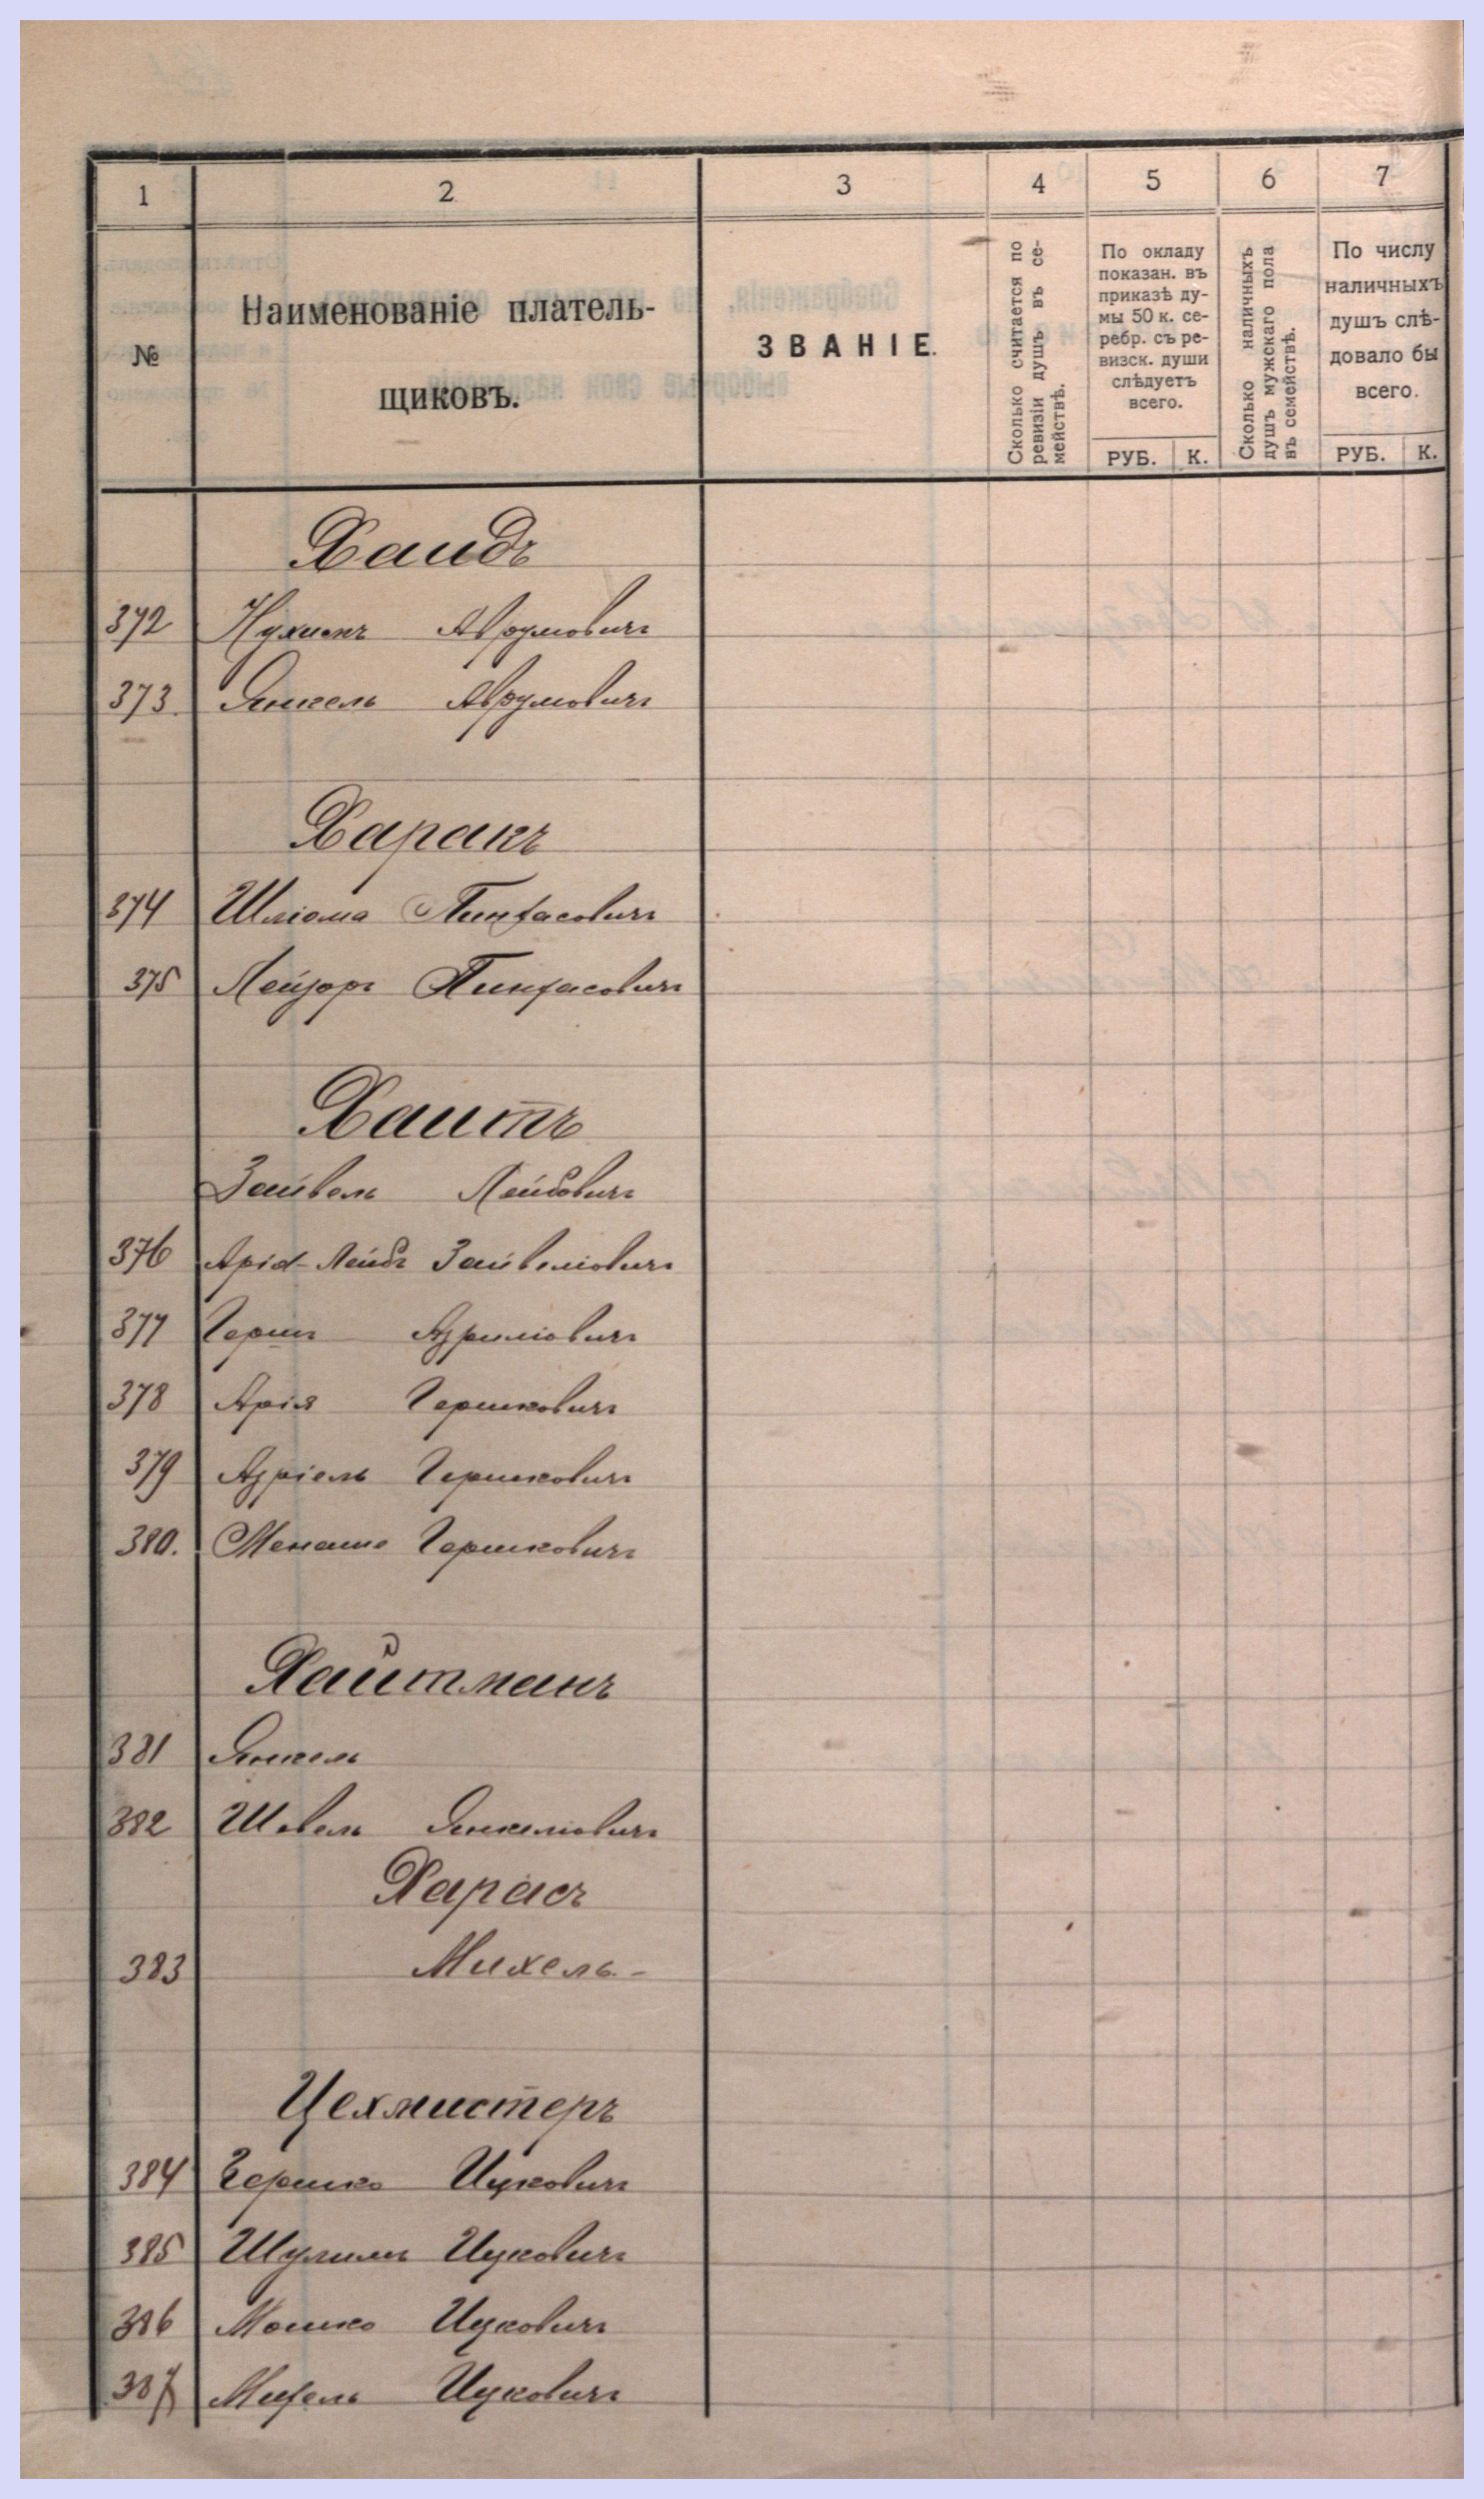 1 2 3 4 5 6 7
№
Наименованіе платель-
щиковъ.
ЗВАНІЕ.
Сколько считается по
ревизіи душъ въ се-
мействѣ.
По окладу
показан. въ
приказѣ ду-
мы 50 к. се-
ребр. съ ре-
визск. души
слѣдуетъ
всего.
РУБ. К.
Сколько наличныхъ
душъ мужскаго пола
въ семействѣ.
По числу
наличныхъ
душъ слѣ-
довало бы
всего.
РУБ. К.
Хаидъ
372 Нухимъ Аврумовичъ
373. Янкель Аврумовичъ
Харакъ
374 Шліома Пинхасовичъ
375 Лейзоръ Пинхасовичъ
Хаитъ
Зайвель Лейбовичъ
376 Арія-Лейбъ Зайвеліовичъ
377 Гершъ Азриліовичъ
378 Арія Гершковичъ
379 Азріель Гершковичъ
380. Менаше Гершковичъ
Хайтманъ
381 Янкель
382 Шевель Янкеліовичъ
Харасъ
383 Михель-
Цехмистеръ
384 Гершко Ицковичъ
385 Шулимъ Ицковичъ
386 Мошко Ицковичъ
387 Михель Ицковичъ